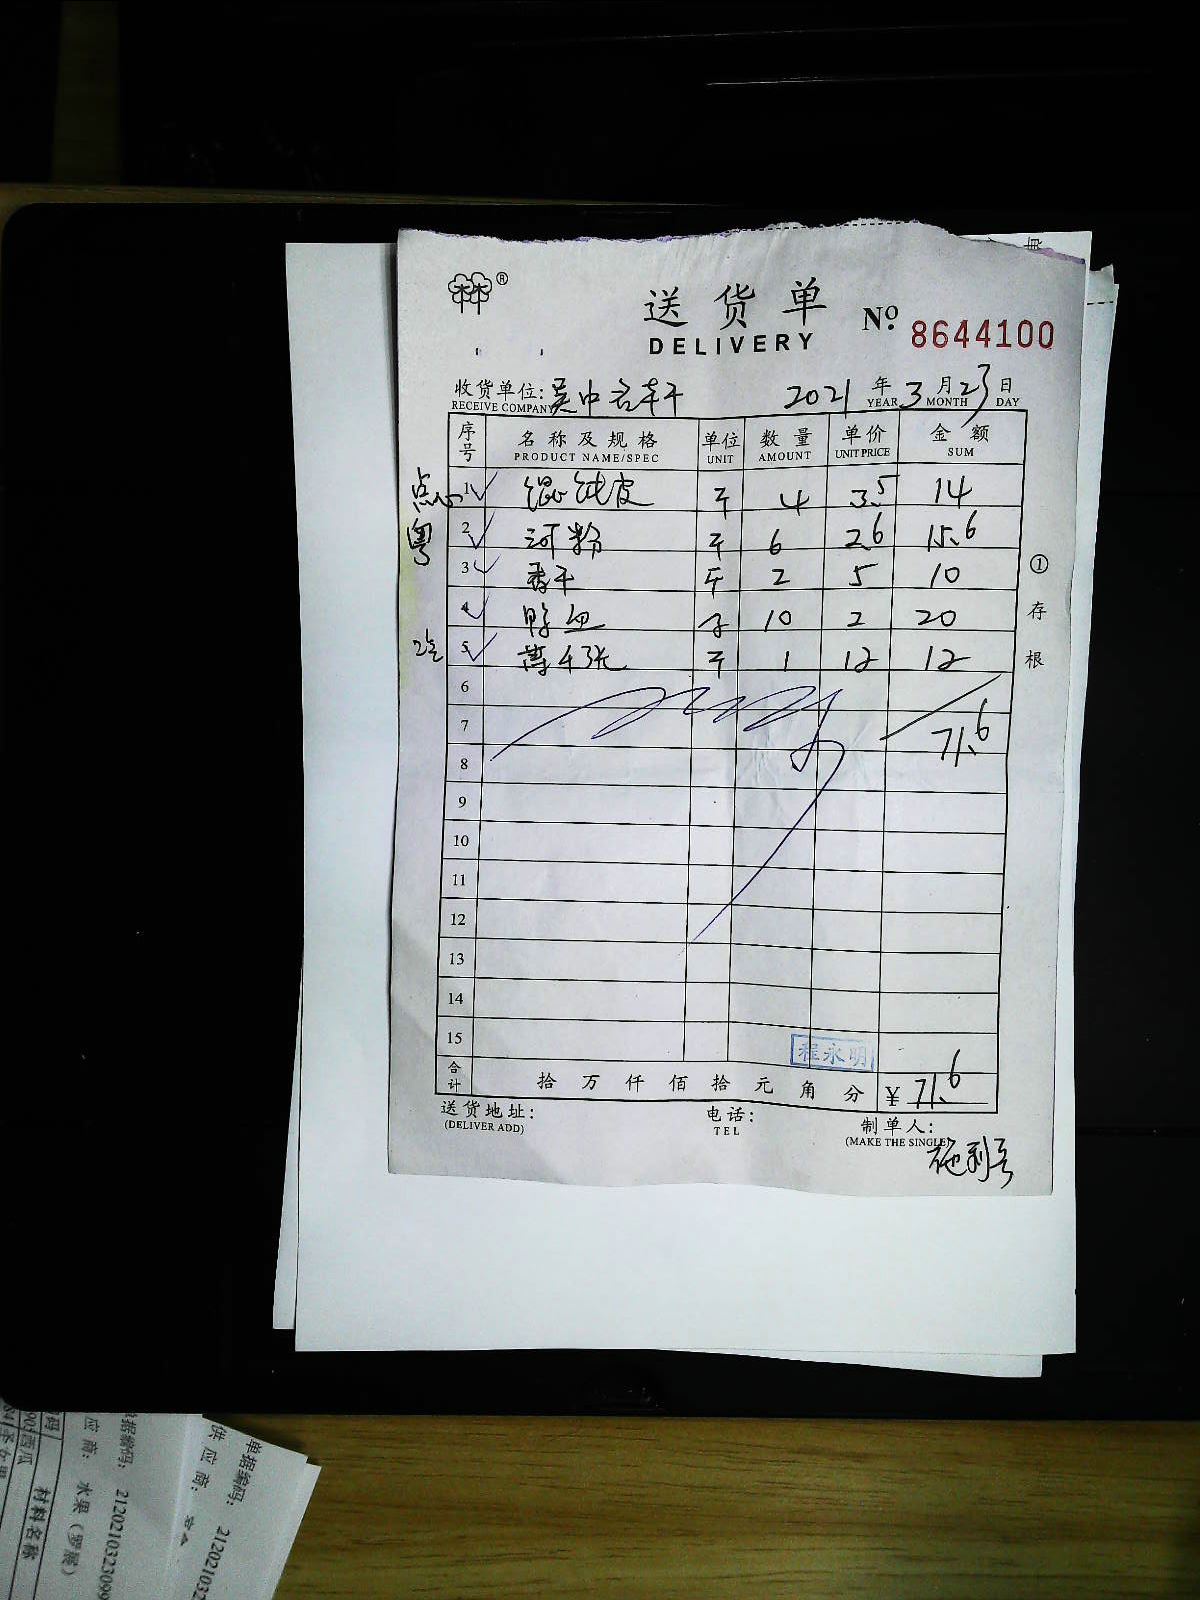 ®
送货单 No. 8644100
DELIVERY
收货单位: 吴中名车干 2021 年 3 月 23 日
RECEIVE COMPANY YEAR MONTH DAY
序号 名称及规格 单位 数量 单价 金额
PRODUCT NAME/SPEC UNIT AMOUNT UNIT PRICE SUM
点心 1 馄饨皮 斤 4 3.5 14
粤 2 河粉 斤 6 2.6 15.6
3 香干 斤 2 5 10
4 鸭血 10 2 20
5 薄千张 斤 1 12 12
6
7 71.6
8
9
10
11
12
13
14
15 程永明
合计 拾 万 仟 佰 拾 元 角 分 ¥ 71.6
送货地址: 电话: 制单人:
(DELIVER ADD) TEL (MAKE THE SINGLE)
①存根
单据编码: 212021032
供应商:
单据编码: 2120210323099
应商: 水果（罗展）
材料名称
西瓜